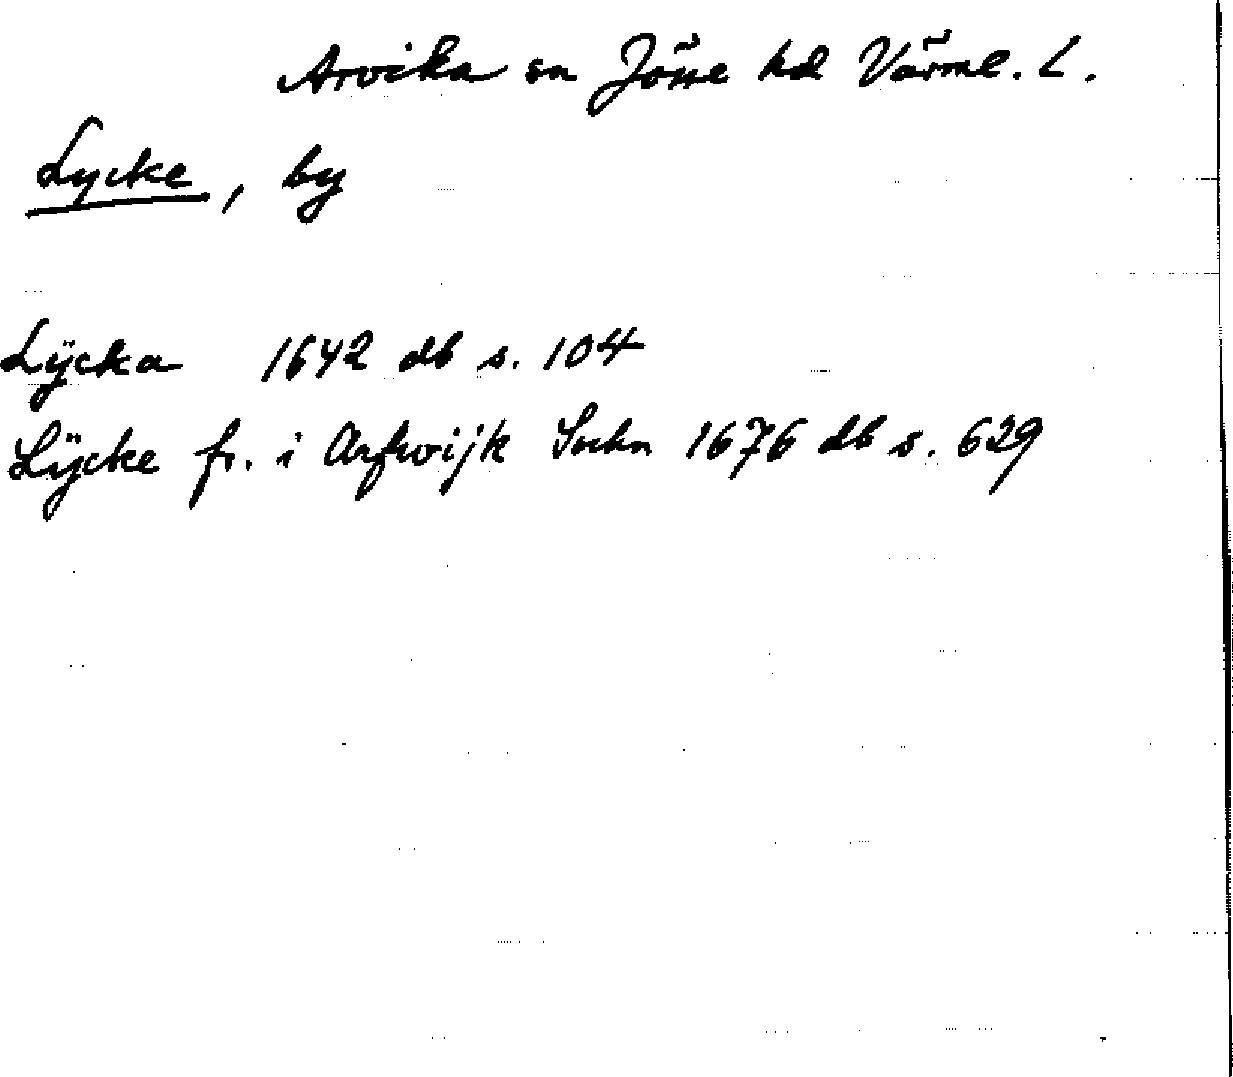 Arvika sn Jösse hd Värml. L.
Lycke, by
Lÿcka 1642 db s. 104
Lÿcke fr. i Arfwijk Sochn 1676 db s. 629